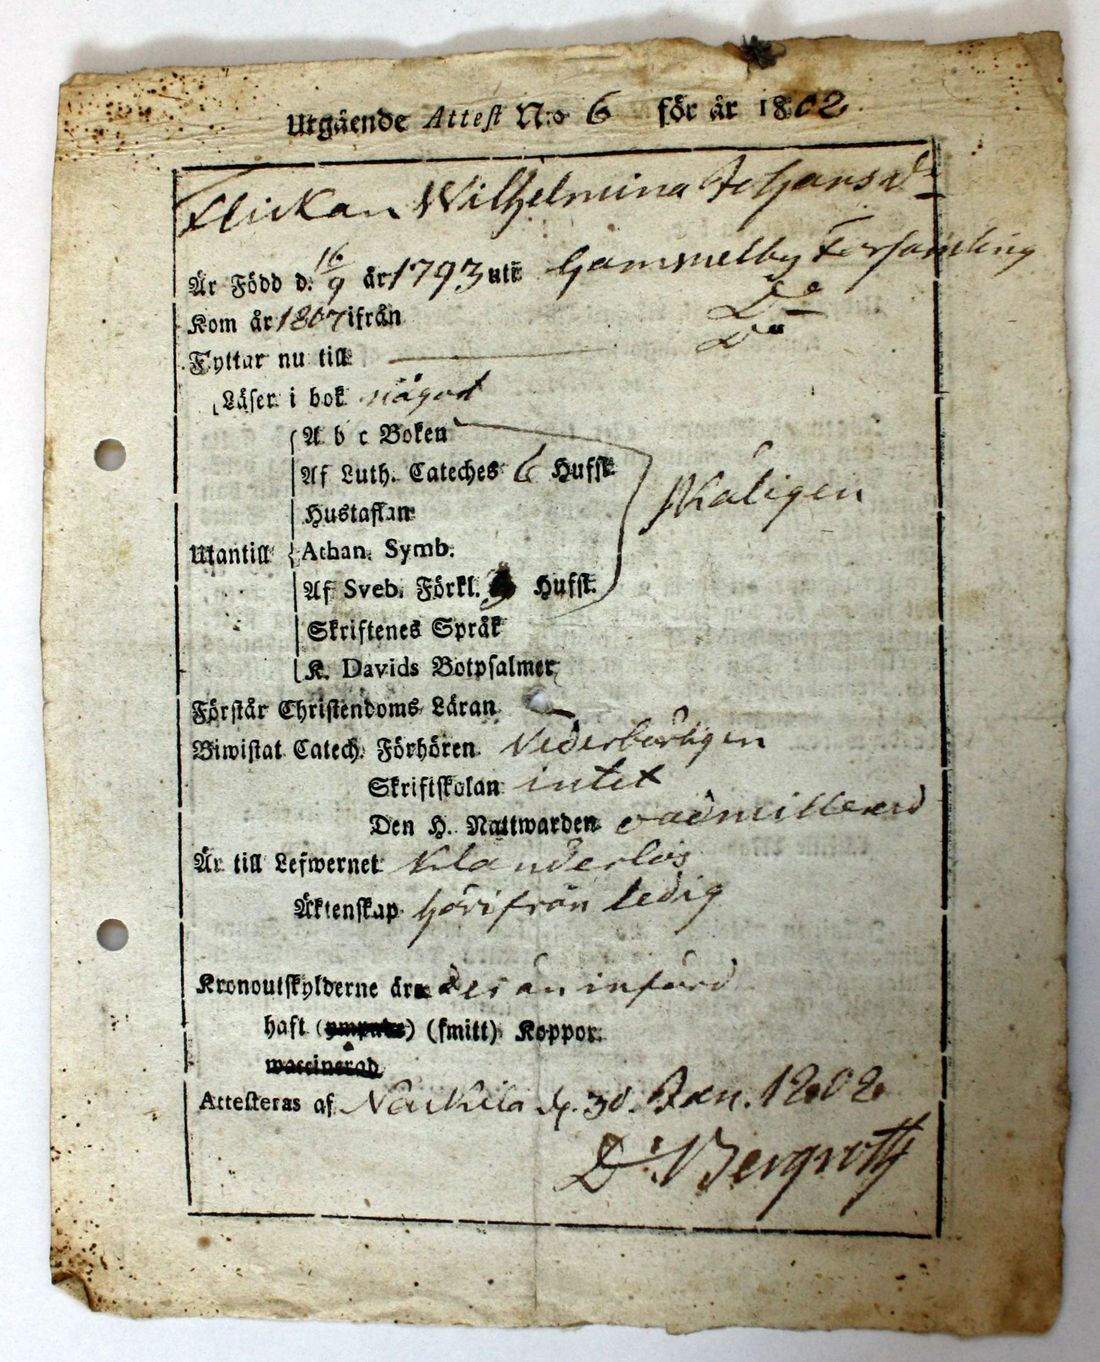 Utgående Attest N:o 6 för år 1802
Flickan Wilhelmina Johansd:r
Är Född d. 16/9 år 1793 uti Gammelby Församling
Kom år 1807 ifrån D:o
Fyttar nu till — D:o
Läser i bok något
A b c Boken
Af Luth. Cateches 6 Hufst.
Hustaflan
Utantill Athan. Symb.
Af Sveb. Förkl. Hufst.
skäligen
Skriftenes Språk
K. Davids Botpsalmer
Förstår Christendoms Läran
Biwistat Catech. Förhören Vederbörligen
Skriftskolan intet
Den H. Nattwarden oadmitterad
Är till Lefwernet klanderlös
Äktenskap härifrån ledig
Kronoutskylderne äro
haft (ympade) (smitt) Koppor.
waccinerad
Attesteras af d. 30. Jan. 1802.
D. Bergroth